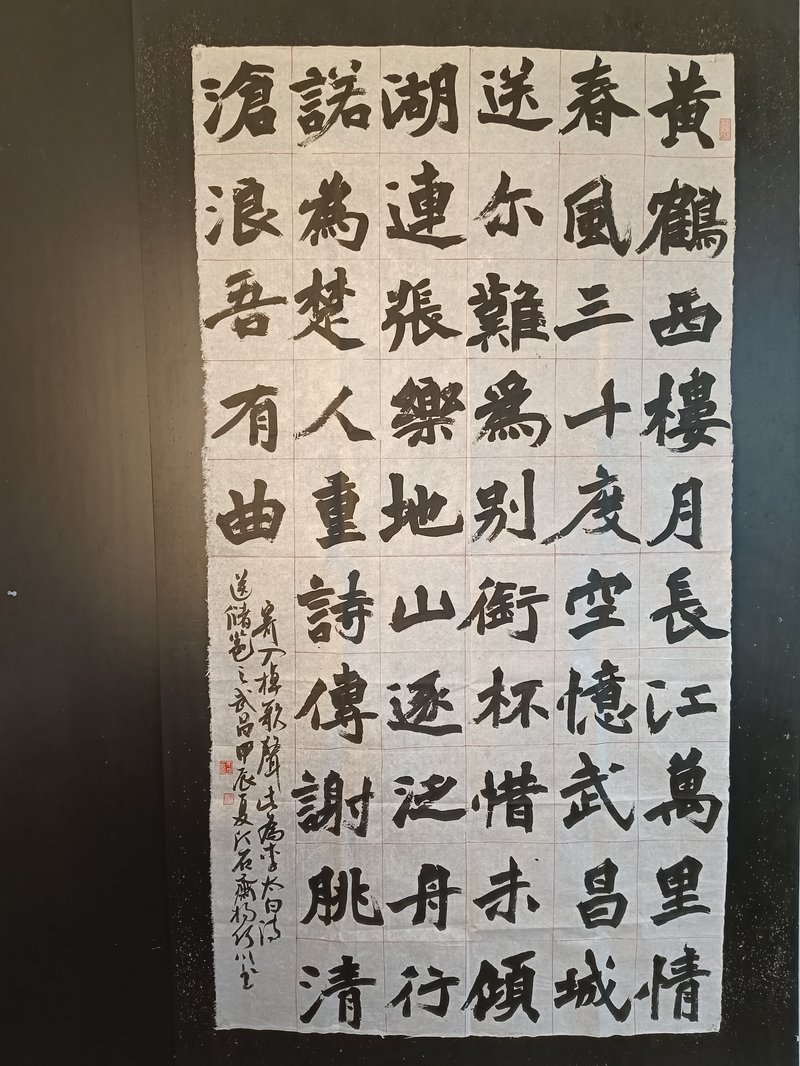 黃鶴西樓月長江萬里情
春風三十度空憶武昌城
送尔難爲別銜杯惜未傾
湖連張樂地山逐泛舟行
諾為楚人重詩傳謝朓清
滄浪吾有曲
寄入棹歌聲此為李太白詩
送儲邕之武昌甲辰夏江石齋楊